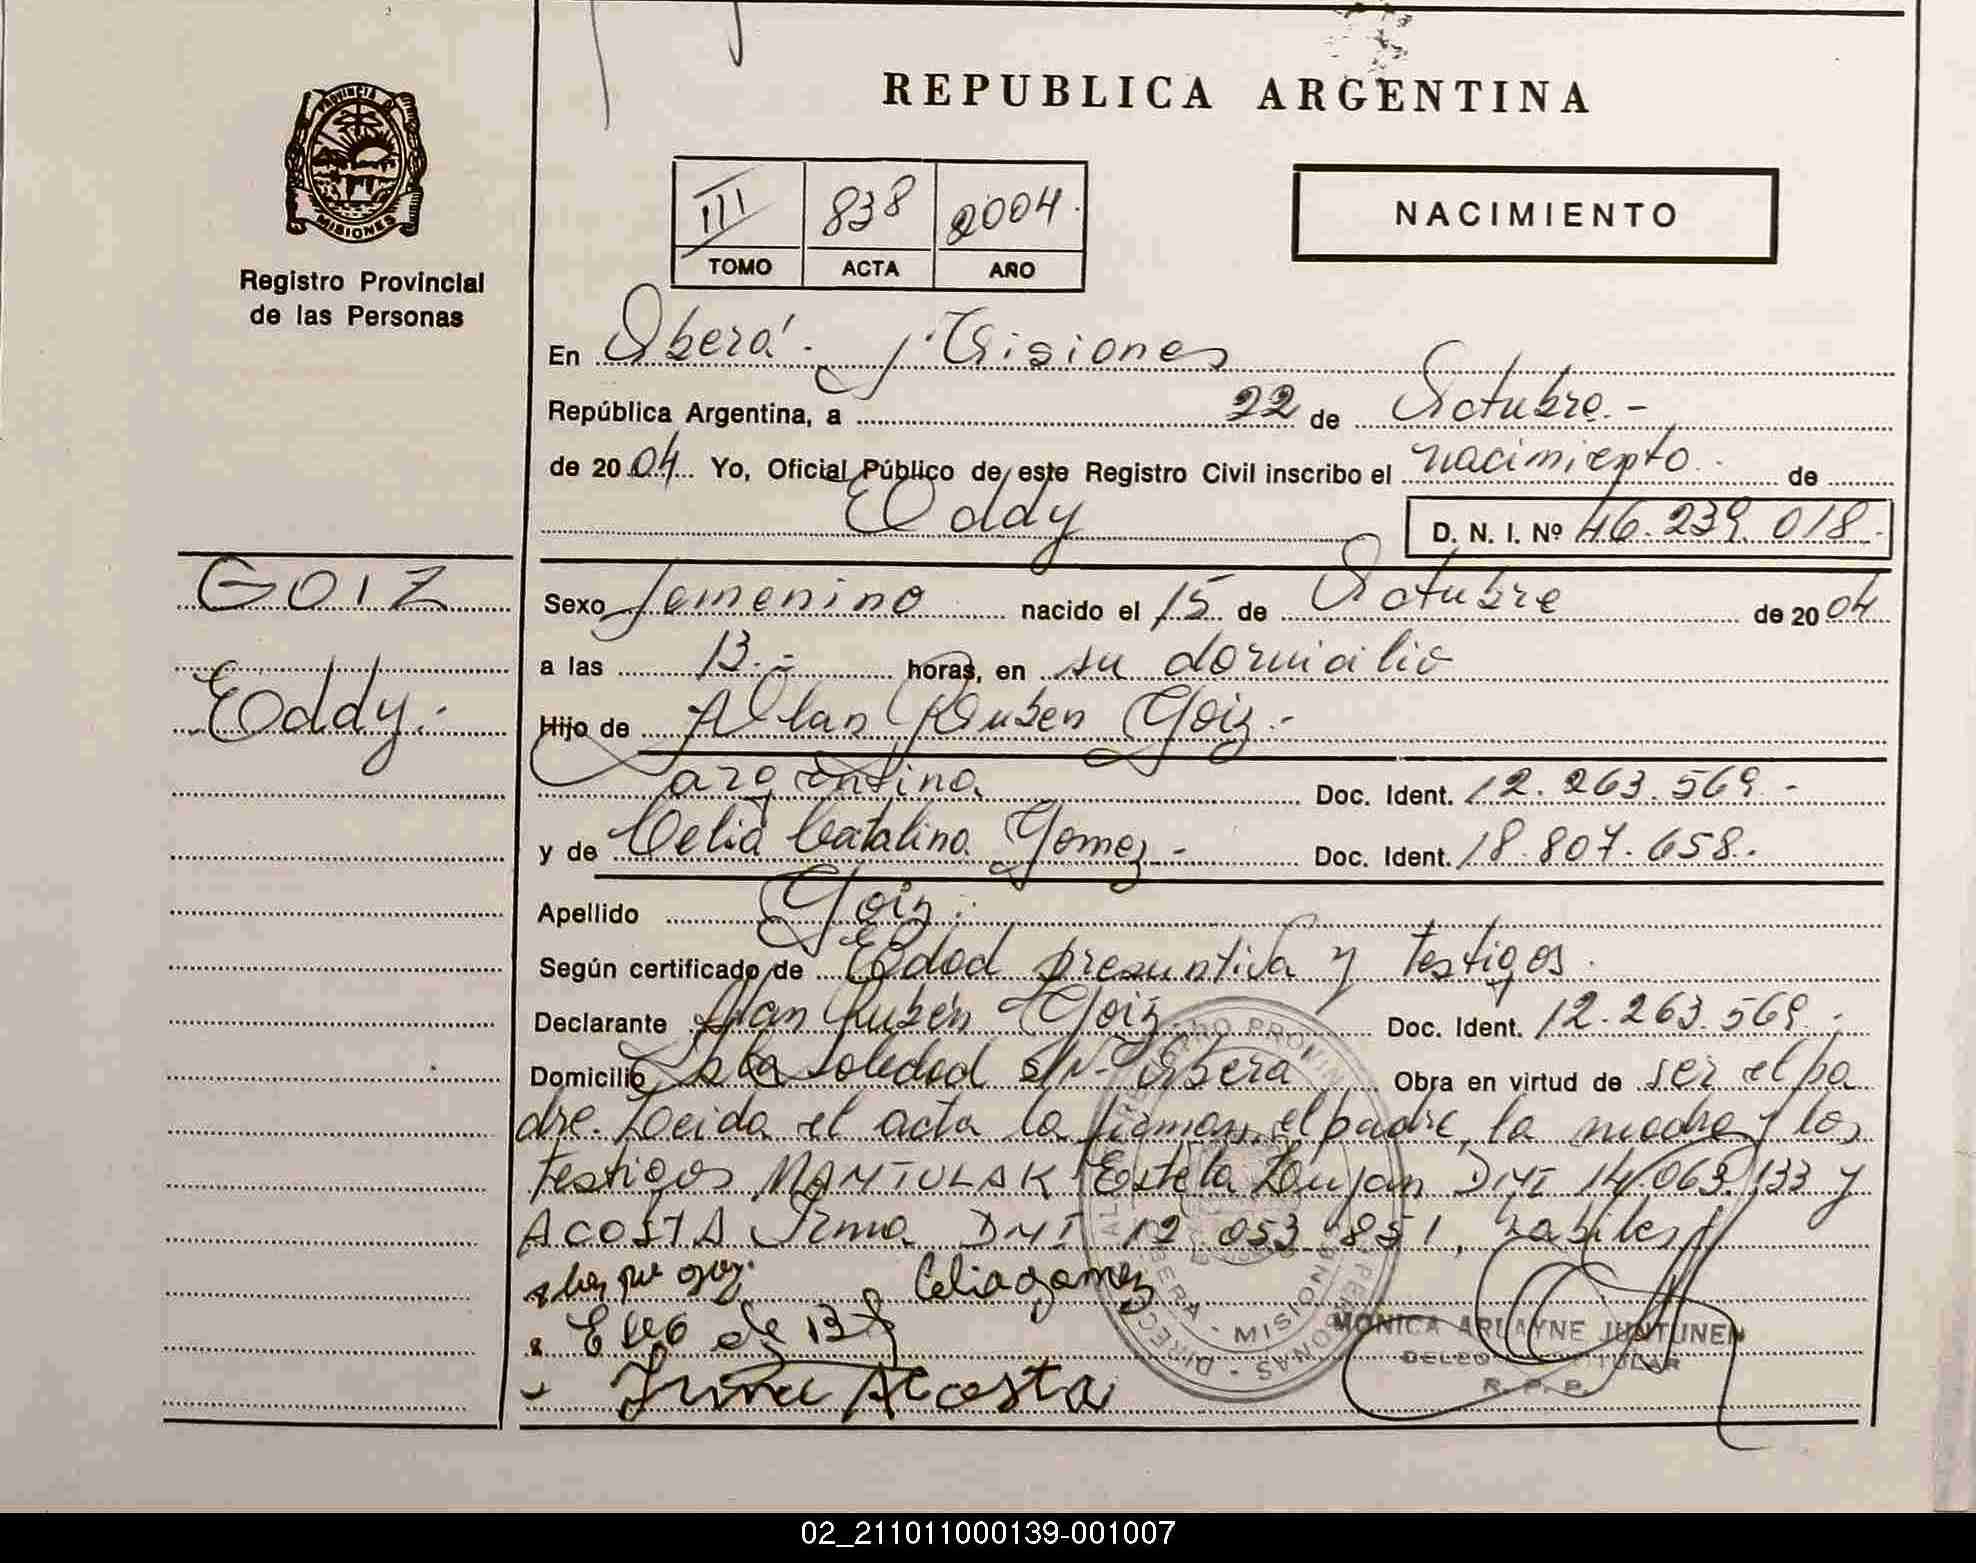 REPUBLICA ARGENTINA
PROVINCIA DE
MISIONES
Registro Provincial
de las Personas
III 838 2004.
TOMO ACTA AÑO
NACIMIENTO
En Oberá. Misiones
República Argentina, a 22 de Octubre.-
de 2004 Yo, Oficial Público de este Registro Civil inscribo el nacimiento de
Eddy
D. N. I. Nº 46.239.018.-
GOIZ
Eddy.-
Sexo femenino nacido el 15 de Octubre de 2004
a las 13.- horas, en su domicilio
Hijo de Allan Ruben Goiz.-
argentina Doc. Ident. 12.263.569.-
y de Celia Catalina Gomez.- Doc. Ident. 18.807.658.-
Apellido Goiz.-
Según certificado de Edad presuntiva y testigos.
Declarante Allan Rubén Goiz. Doc. Ident. 12.263.569.-
Domicilio La Soledad S/N- Oberá Obra en virtud de ser el pa
dre. Leida el acta la firman, el padre, la madre y los
testigos MANTULAK Estela Lujan DNI 14.063.133 y
ACOSTA Irma DNI 12.053.851, habiles
Celia gomez
Irma Acosta
MONICA ARLAYNE JUNTUNEN
TITULAR
R. P. P.
02_211011000139-001007